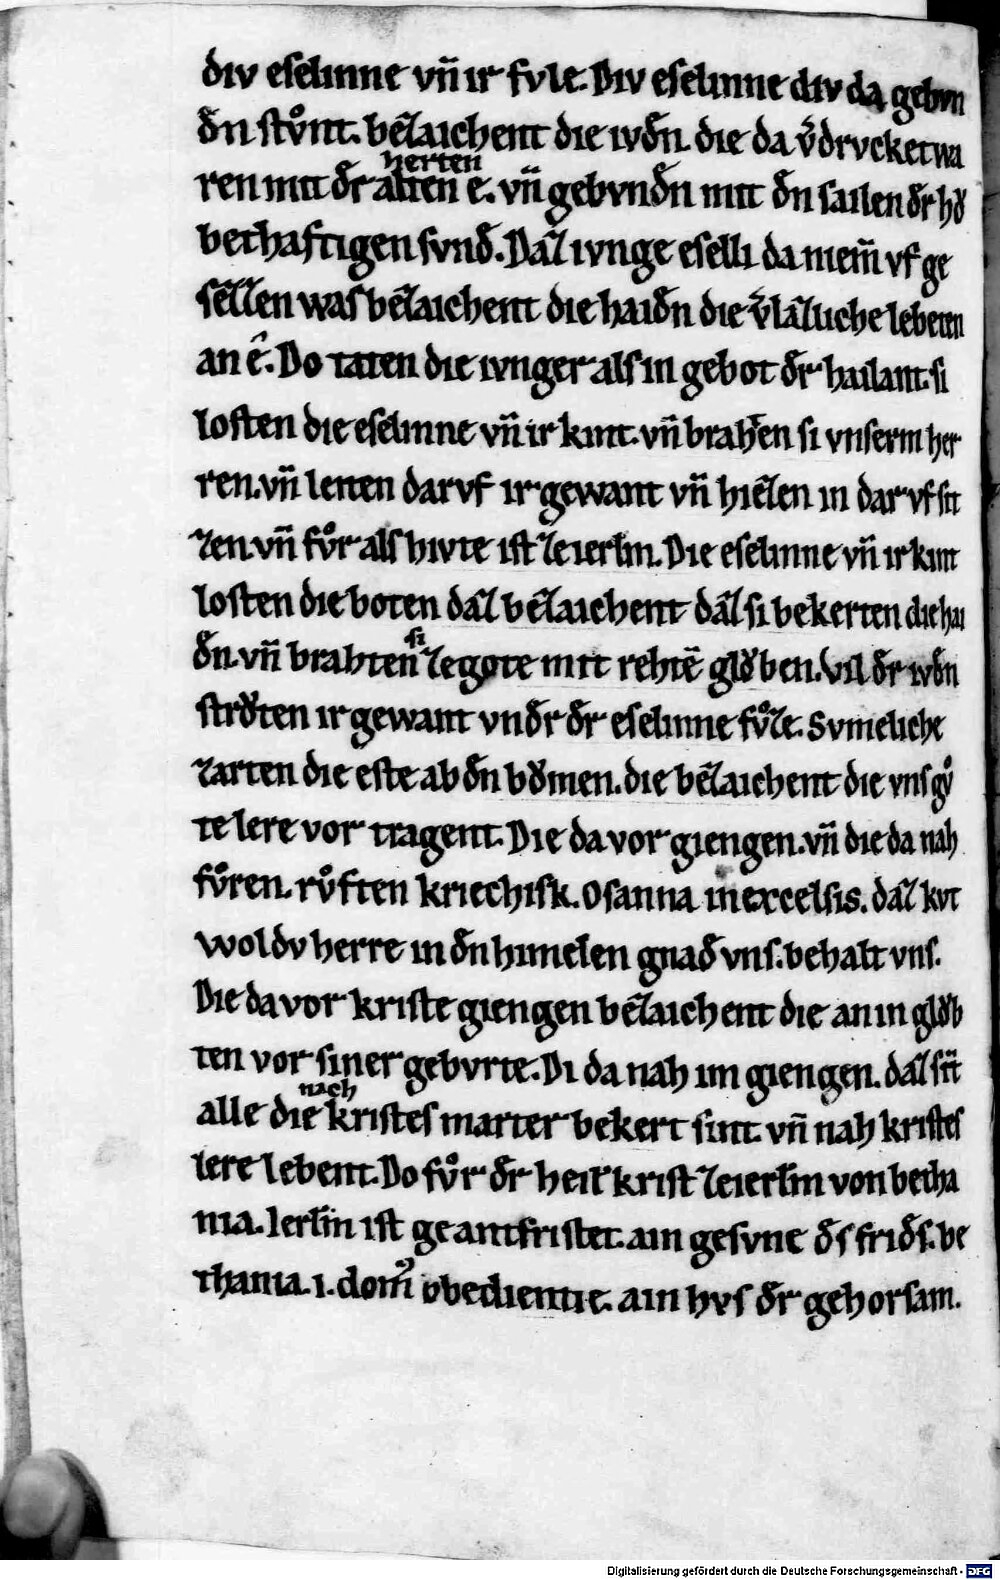 div eselinne vn̄ ir fvle. Div eselinne div da gebvn
đn stvͦnt. bezaichent die ivđn. die da v̄drvcket wa
ren mit đr herten alten e. vn̄ gebvnđn mit đn sailen đr hoͮ
bethaftigen svnđ. Daz ivnge eselli da niem̄ vf ge
sezzen was bezaichent die haiđn die v̄lazliche lebeten
an ê. Do taten die ivnger als in gebot đr hailant. si
losten die eselinne vn̄ ir kint. vn̄ brahten si vnserm her
ren. vn̄ leiten dar vf ir gewant vn̄ hiezen in dar vf sit
zen vn̄ fvͦr als hivte ist ze ierl̄m. Die eselinne vn̄ ir kint
losten die boten daz bezaichent daz si bekerten die hai
đn. vn̄ brahten si ze gote mit rehtē gloͮben. Vil đr ivđn
stroͮten ir gewant vnđr đr eselinne fvͦze. Svmeliche
zarten die este ab đn boͮmen. die bezaichent die vns gvͦ
te lere vor tragent. Die da vor giengen. vn̄ die da nah
fvͦren. rvͦften kriechisk. Osanna in excelsis. daz kvt
wol dv herre in đn himelen gnađ vns. behalt vns.
Die da vor kriste giengen bezaichent die an in gloͮb
ten vor siner gebvrte. Di da nah im giengen. daz sīt
alle die nach kristes marter bekert sint. vn̄ nah kristes
lere lebent. Do fvͦr đr heil' krist ze ierl̄m von betha
nia. Ierl̄m ist geantfristet. ain gesvne đs friđs. be
thania. i. dom' obedientie. ain hvs đr gehorsam.
Digitalisierung gefördert durch die Deutsche Forschungsgemeinschaft - DFG